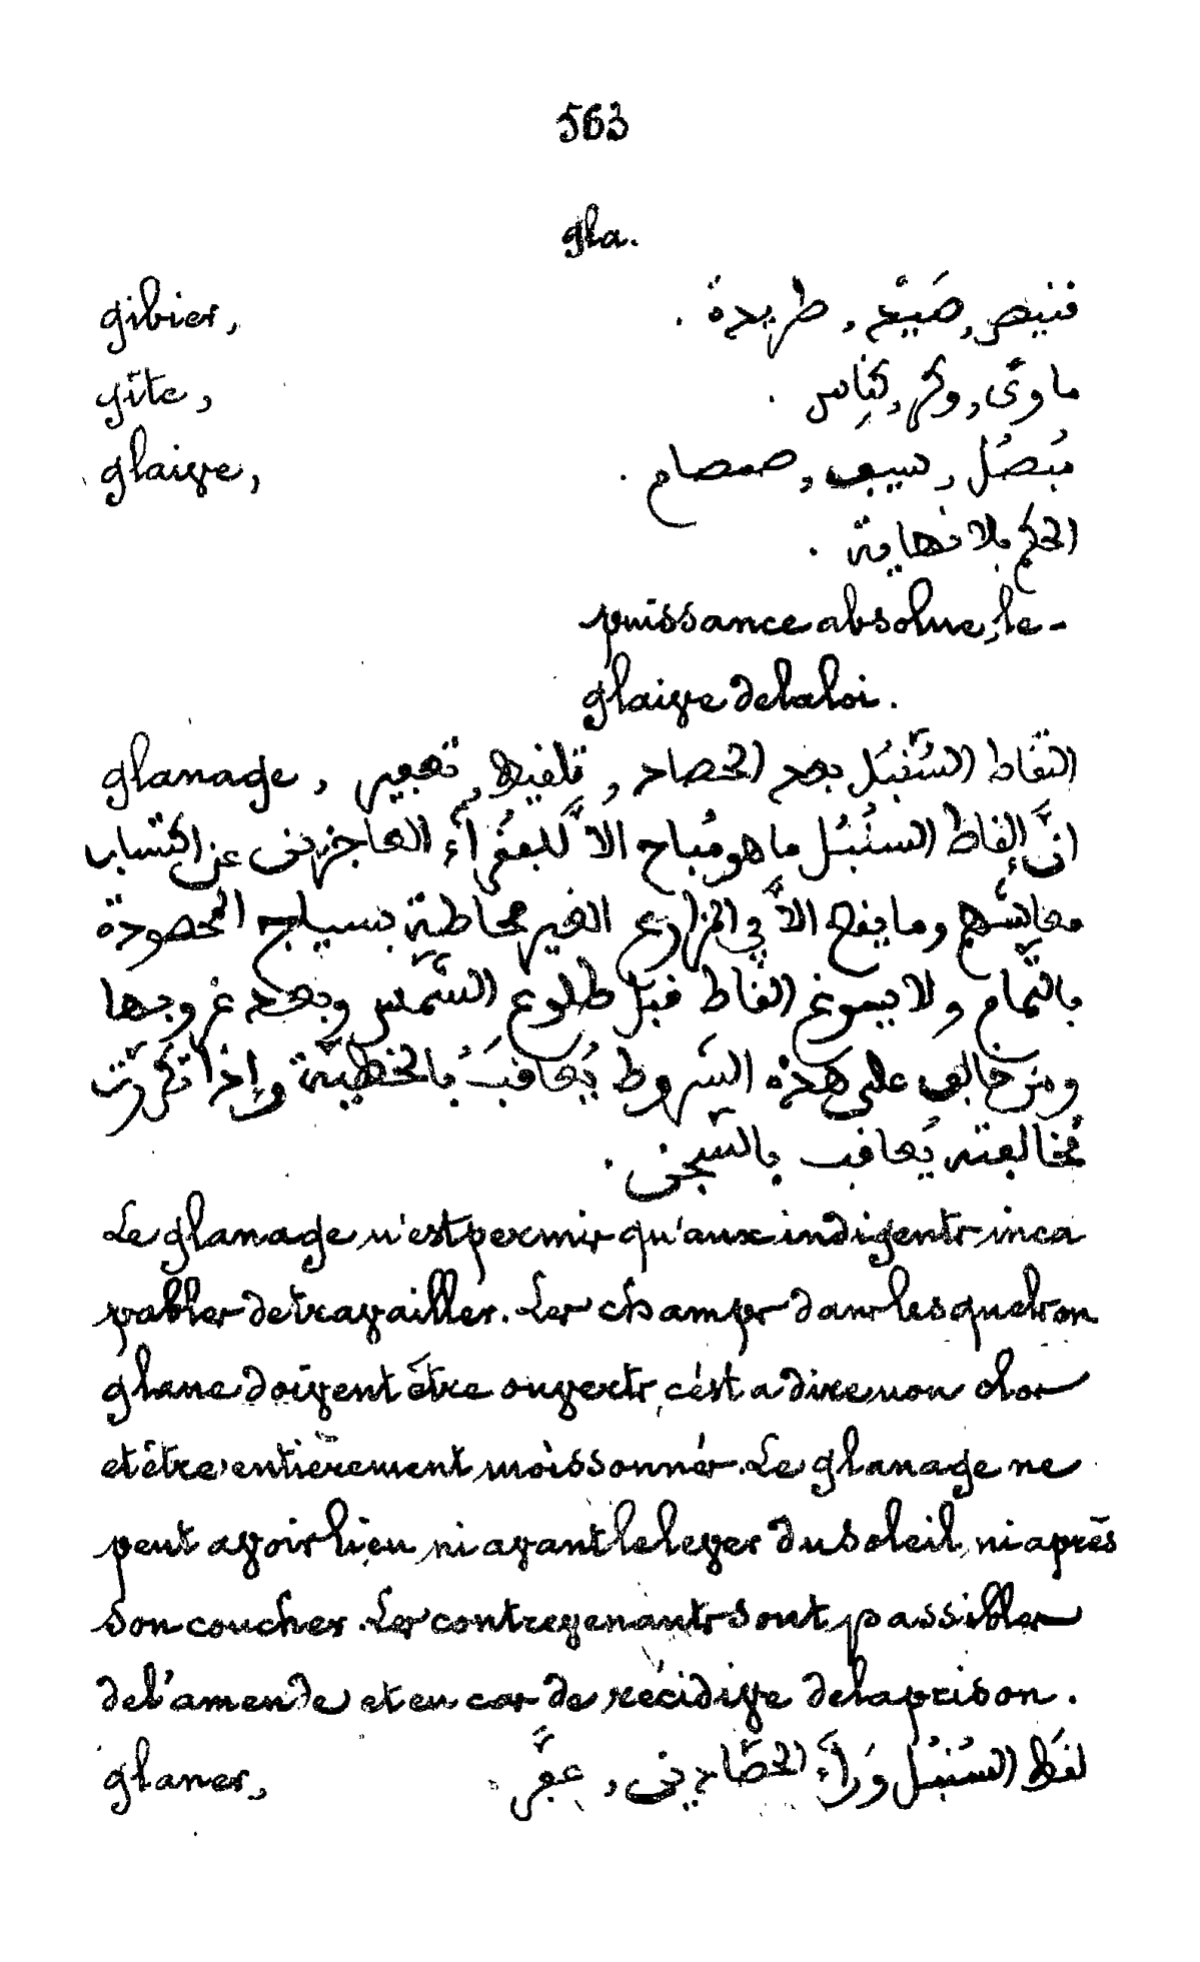 563
gla.
gibier, قنيص, صَيْد, طريدة.
gîte, ماوًى, وكر, كِنَاس.
glaive, مُنصُل, سيف, صمصام.
الحكم بلا نهاية.
puissance absolue, le-
glaive de la loi.
glanage, التقاط السُّنبُل بعد الحصاد, تلقيط,
انَّ إلقاط السنُبُل ما هو مُباح الاَّ للفقرآء العاجزين عن اكتساب
معايشهم وما يقع الاَّ في المزارع الغير محاطة بسياج المحصودة
بالتَّمام ولا يسوغ القاط قبل طلوع الشَّمس وبعد غروبها
ومن خالف على هذه الشَروط يُعاقَبُ بالخطيَّة وإذا تكرَّرت
مُخالفته يُعاقب بالسّجن.
Le glanage n'est permis qu'aux indigents inca
pables de travailler. Les champs dans lesquels on
glane doivent être ouverts, cést a dire non clos
et être entièrement moissonnés. Le glanage ne
peut avoir lieu, ni avant le lever du soleil, ni après
son coucher. Les contrevenants sont passibles
de l'amende et en cas de récidive de la prison.
glaner, لقط السُنبُل وَرآءَ الحصَّادين, عفَّر